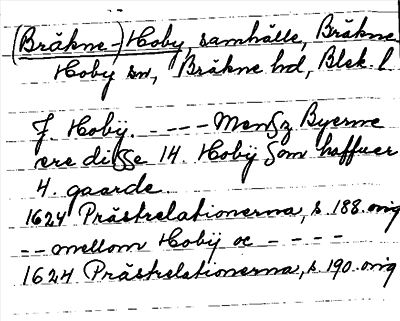 (Bräkne-) Hoby, samhälle, Bräkne-
Hoby sn, Bräkne hd, Blek. l.
J. Hobÿ. - - - - Mensz Byerne
ere disse 14. Hobÿ som haffuer
4. gaarde.
1624 Prästrelationerna, s. 188. orig
- - mellom Hobÿ oc - - - -
1624 Prästrelationerna, s. 190. orig